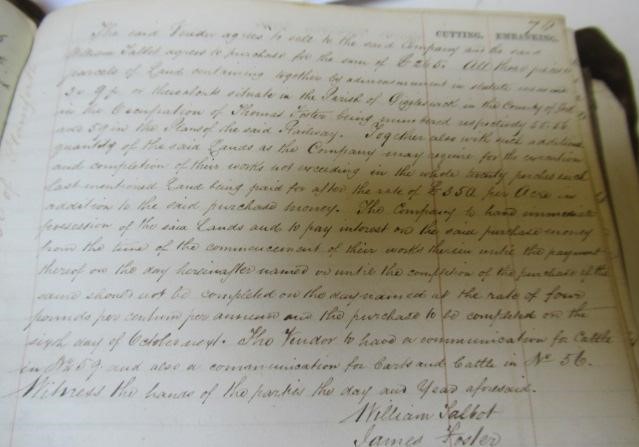 76
CUTTING. EMBANKING.
The said Vendor agrees to sell to the said Company and the said
William Talbot agrees to purchase for the sum of £245. All those pieces
parcels of Land containing together by admeasurement in statute measure
or thereabouts situate in the Parish of Giggleswick in the County of
in the Occupation of Thomas Foster being numbered respectively 55. 56
and 59 in the Plans of the said Railway. Together also with such additional
quantity of the said Lands as the Company may require for the execution
and completion of their works not exceeding in the whole twenty perches such
last mentioned Land being paid for after the rate of £350 per Acre in
addition to the said purchase money. The Company to have immediate
possession of the said Lands and to pay interest on the said purchase money
from the time of the commencement of their works therein until the payment
thereof on the day hereinafter named or until the completion of the purchase if the
same should not be completed on the day named at the rate of four
pounds per centum per annum and the purchase to be completed on the
sixth day of October next. The Vendor to have a communication for Cattle
in No. 59 and also a communication for Carts and Cattle in No 56.
Witness the hands of the parties the day and Year aforesaid.
William Talbot
James Foster